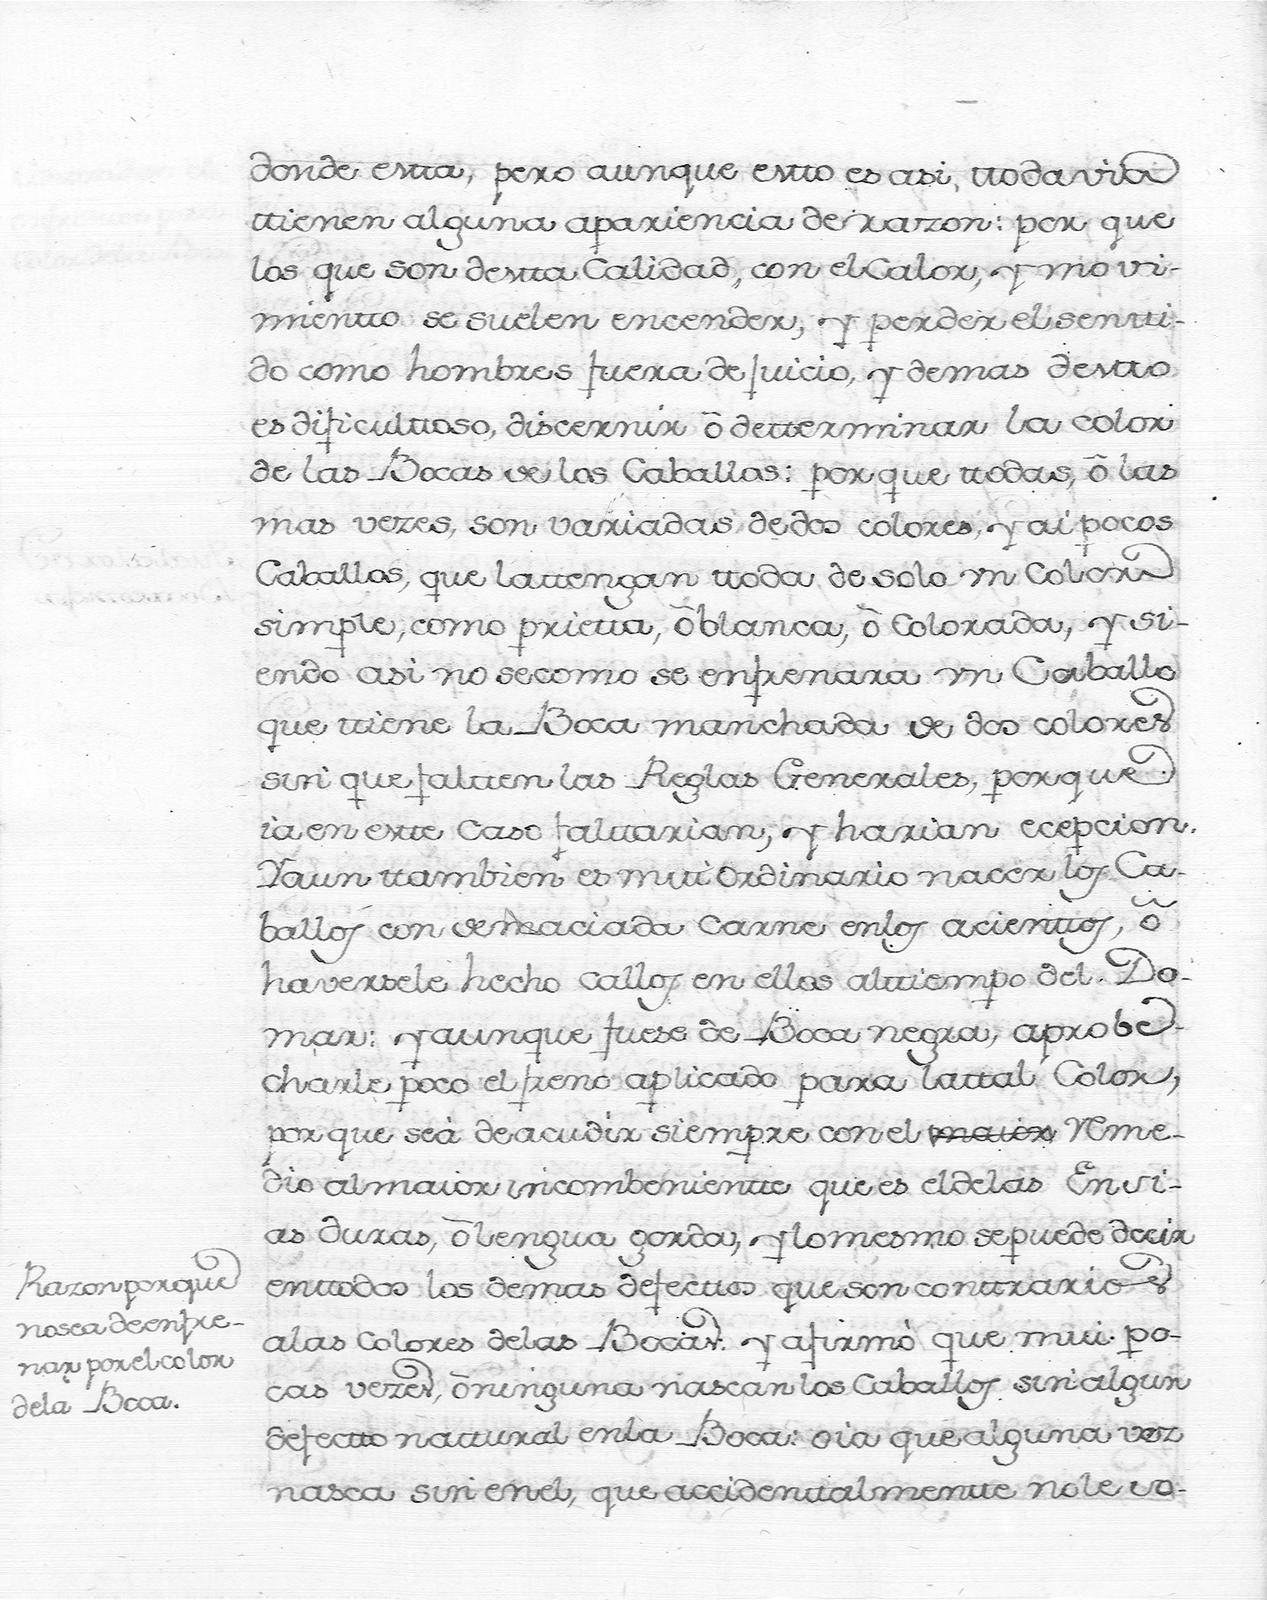 donde estta, pero aunque estto es asi, ttoda via
ttienen alguna apariencia de razon: por que
los que son destta Calidad, con el Calor, y movi-
mientto se suelen encender, y perder el sentti-
do como hombres fuera de juicio, y demas destto
es dificulttoso, discernir ô detterminar la color
de las Bocas de los Caballos: por que ttodas, ô las
mas vezes, son variadas de dos colores, y ai pocos
Caballos, que lattengan ttoda de solo vn Color
simple, como prietta, ô blanca, ô Colorada, y si-
endo asi no se como se enfrenara vn Caballo
que ttiene la Boca manchada de dos colores
sin que faltten las Reglas Generales, por que
ia en estte Caso falttarian, y harian ecepcion.
Yaun ttambien es mui Ordinario nacer los Ca-
ballos con demaciada Carne enlos acienttos, ô
haversele hecho Callos en ellos alttiempo del Do-
mar: y aunque fuese de Boca negra, aprobe-
charle poco el freno aplicado para lattal Color,
por que seà de acudir siempre con el maior Reme-
dio al maior incombenientte que es el delas Enci-
as duras, ô lengua gorda, y lo mesmo se puede decir
enttodos los demas defecttos que son conttrarios
alas Colores delas Bocas. Y afirmo que mui po-
cas vezes, ô ninguna nascan los Caballos sin algun
defectto nattural enla Boca: oia que alguna vez
nasca sin en el, que accidenttalmentte no le vo-
Razon por que
no sea de enfre-
nar por el color
dela Boca.